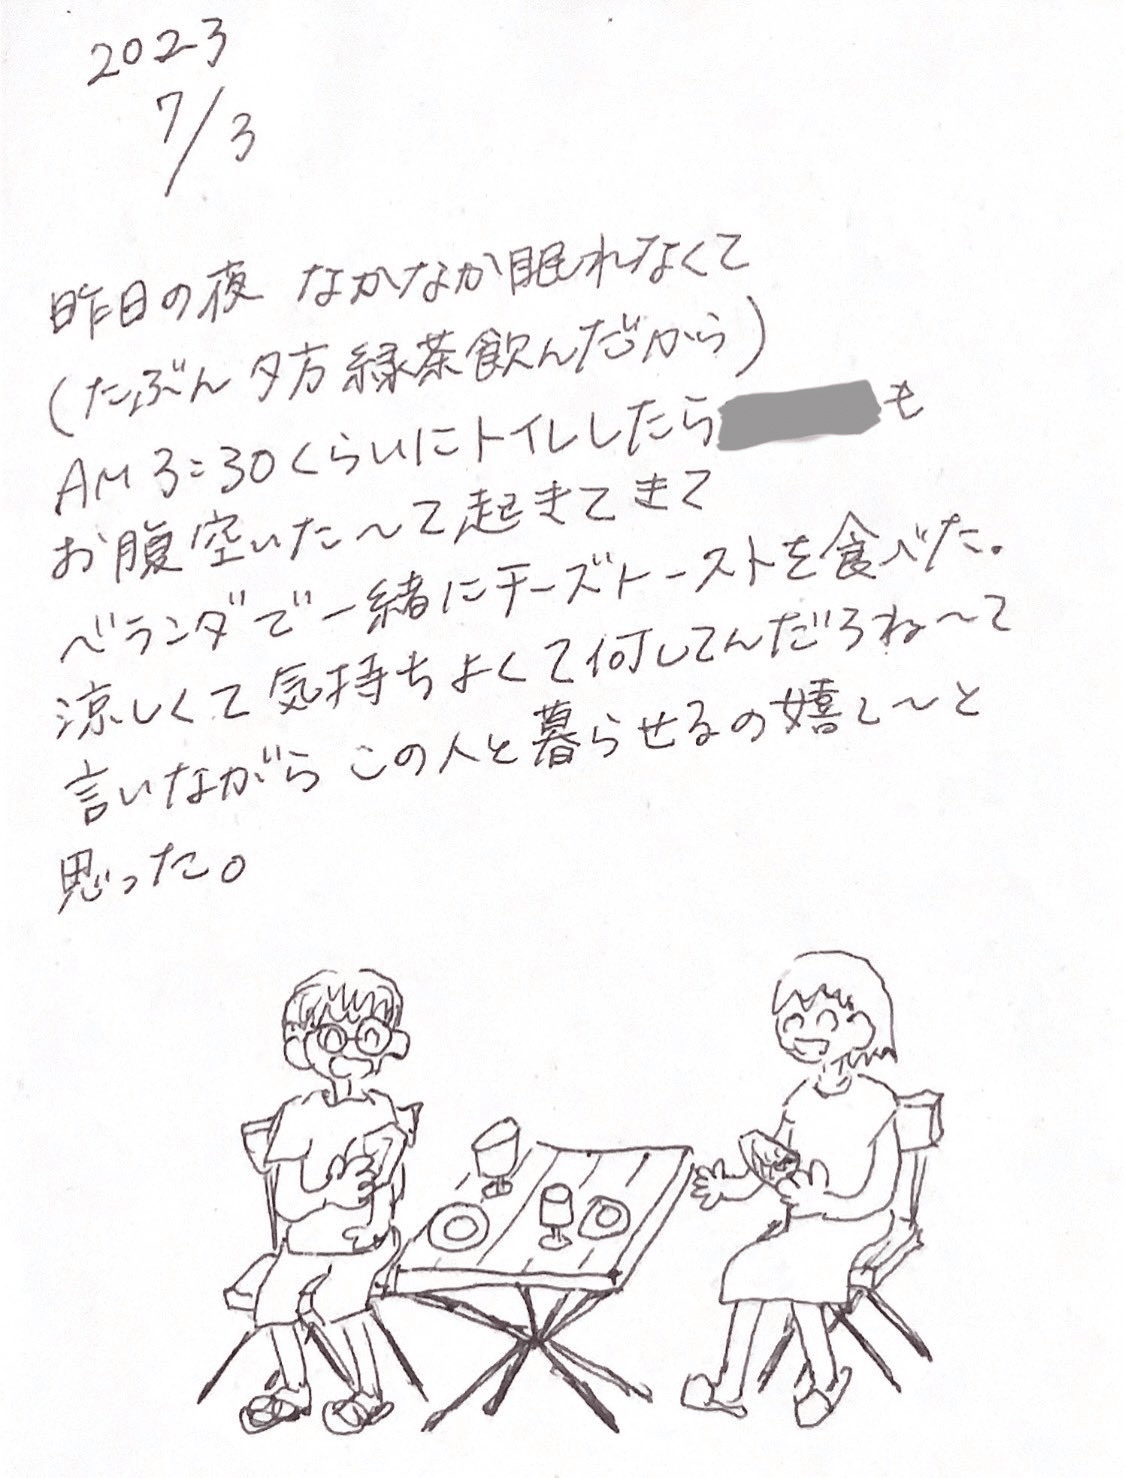 2023
7/3
昨日の夜 なかなか眠れなくて
(たぶん夕方緑茶飲んだから)
AM3:30くらいにトイレしたら も
お腹空いた〜て起きてきて
ベランダで一緒にチーズトーストを食べた。
涼しくて気持ちよくて何してんだろね〜て
言いながらこの人と暮らせるの嬉し〜と
思った。